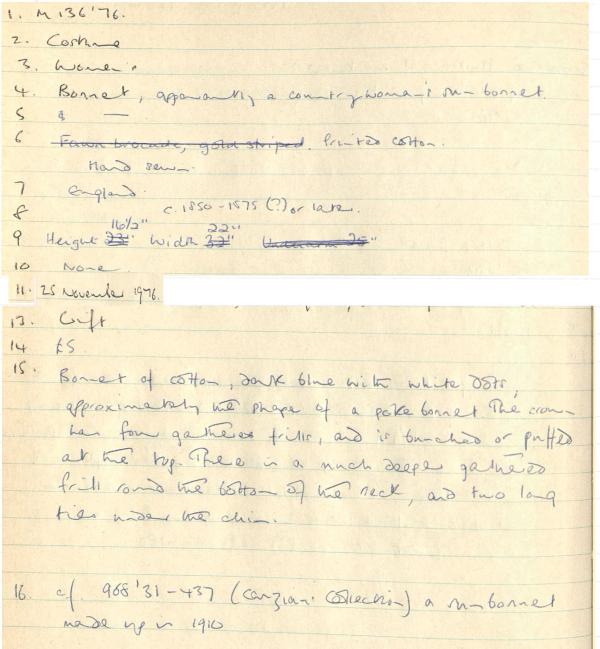 1. M 136'76.
2. Costume
3. Women's
4. Bonnet, apparently a countrywoman's sun-bonnet.
5 & —
6 Fawn brocade, gold striped. Printed cotton.
Hand sewn.
7 England.
8 c. 1850 - 1875 (?) or later.
16½" 22"
9 Height 23" Width 32" Underarm 25"
10 None
11. 25 November 1976.
13. Gift
14 £5
15. Bonnet of cotton, dark blue with white dots,
approximately the shape of a poke bonnet. The crown
has four gathered frills, and is bunched or puffed
at the top. There is a much deeper gathered
frill round the bottom of the neck, and two long
ties under the chin.
16. cf. 968'31-437 (Canziani Collection) a sunbonnet
made up in 1910